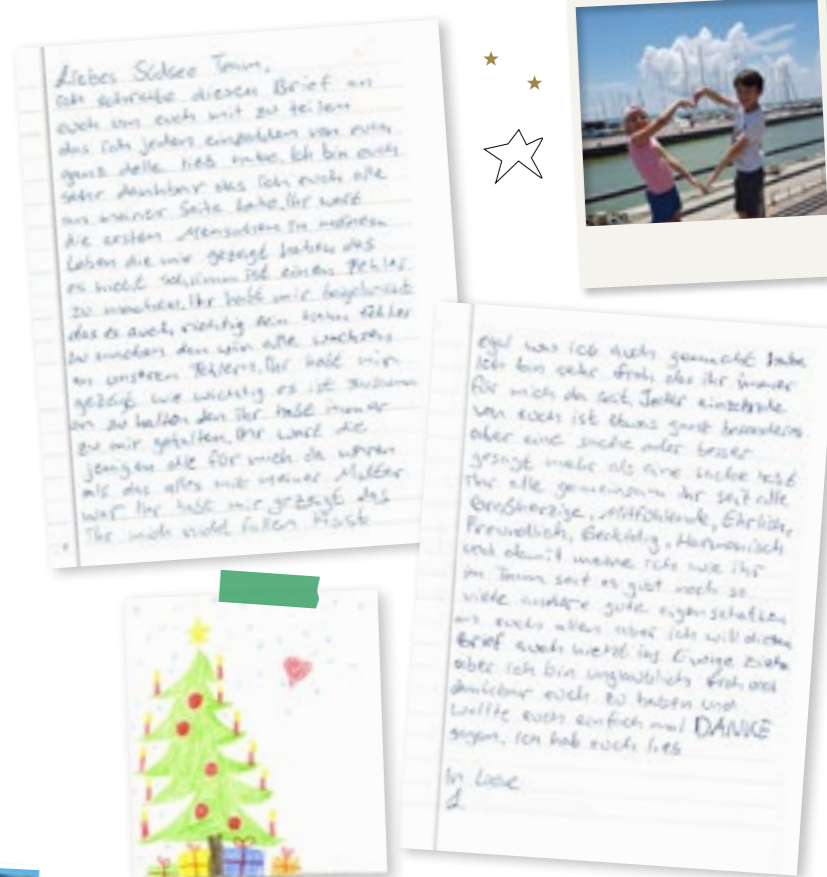 Liebes Südsee Team,
ich schreibe diesen Brief an
euch um euch mit zu teilen
das ich jeden einzelnen von euch
ganz dolle lieb habe. Ich bin euch
sehr dankbar das ich euch alle
an meiner Seite habe. Ihr wart
die ersten Menschen in meinem
Leben die mir gezeigt haben das
es nicht schlimm ist einen Fehler
zu machen. Ihr habt mir beigebracht
das es auch richtig sein kann Fehler
zu machen den wir alle wachsen
an unseren Fehlern. Ihr habt mir
gezeigt wie wichtig es ist zusamm
en zu halten den ihr habt immer
zu mir gehalten. Ihr wart die
jenigen die für mich da waren
als das alles mit meiner Mutter
war Ihr habt mir gezeigt das
Ihr mich nicht fallen lässt
egal was ich auch gemacht habe
Ich bin sehr froh das ihr immer
für mich da seit. Jeder einzelne
von euch ist etwas ganz besonderes
aber eine sache oder besser
gesagt mehr als eine sache habt
Ihr alle gemeinsam ihr seit alle
Großherzige, Mitfühlende, Ehrliche,
Freundlich, Geduldig, Harmonisch
und damit meine ich wie ihr
im Team seit es gibt noch so
viele andere gute eigenschaften
an euch allen aber ich will diesen
Brief auch nicht ins Ewige ziehen
aber ich bin unglaublich froh und
dankbar euch zu haben und
wollte euch einfach mal DANKE
sagen, Ich hab euch lieb
In Love